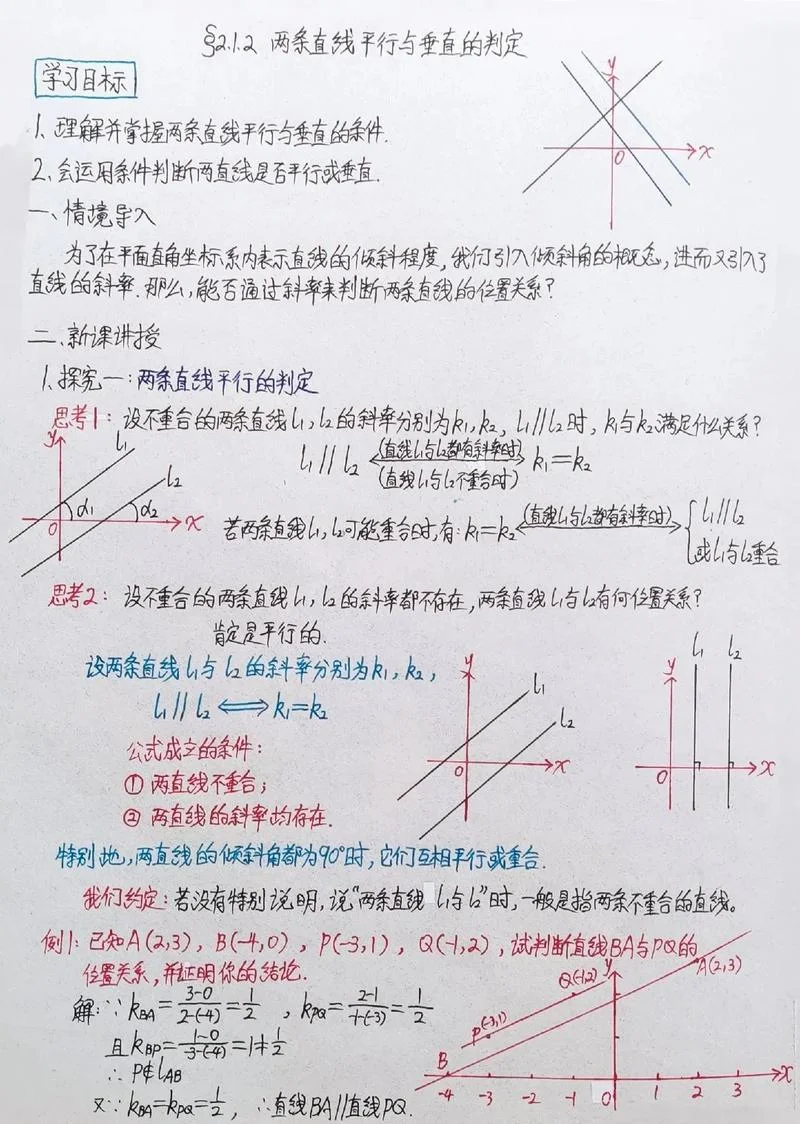 §2.1.2 两条直线平行与垂直的判定
学习目标
1、理解并掌握两条直线平行与垂直的条件.
2、会运用条件判断两直线是否平行或垂直.
y
O
x
一、情境导入
为了在平面直角坐标系内表示直线的倾斜程度,我们引入倾斜角的概念,进而又引入了
直线的斜率.那么,能否通过斜率来判断两条直线的位置关系?
二、新课讲授
1、探究一:两条直线平行的判定
思考1:设不重合的两条直线l₁,l₂的斜率分别为k₁,k₂,l₁∥l₂时,k₁与k₂满足什么关系?
y l₁ l₂ α₁ α₂ O x
l₁∥l₂ ⟺(直线l₁与l₂都有斜率时)(直线l₁与l₂不重合时) k₁=k₂
若两条直线l₁,l₂可能重合时,有:k₁=k₂ ⟺(直线l₁与l₂都有斜率时) { l₁∥l₂
或l₁与l₂重合
思考2:设不重合的两条直线l₁,l₂的斜率都不存在,两条直线l₁与l₂有何位置关系?
肯定是平行的.
设两条直线l₁与l₂的斜率分别为k₁,k₂,
l₁∥l₂ ⟺ k₁=k₂
y l₁ l₂ O x
y l₁ l₂ O x
公式成立的条件:
① 两直线不重合;
② 两直线的斜率均存在.
特别地,两直线的倾斜角都为90°时,它们互相平行或重合.
我们约定:若没有特别说明,说“两条直线l₁与l₂”时,一般是指两条不重合的直线。
例1:已知A(2,3),B(-4,0),P(-3,1),Q(-1,2),试判断直线BA与PQ的
位置关系,并证明你的结论.
解:∵k_BA=3-0/2-(-4)=1/2,k_PQ=2-1/-1-(-3)=1/2
且k_BP=1-0/-3-(-4)=1≠1/2
∴P∉l_AB
又∵k_BA=k_PQ=1/2,∴直线BA∥直线PQ.
y
A(2,3)
Q(-1,2)
P(-3,1)
B
x
-4 -3 -2 -1 O 1 2 3